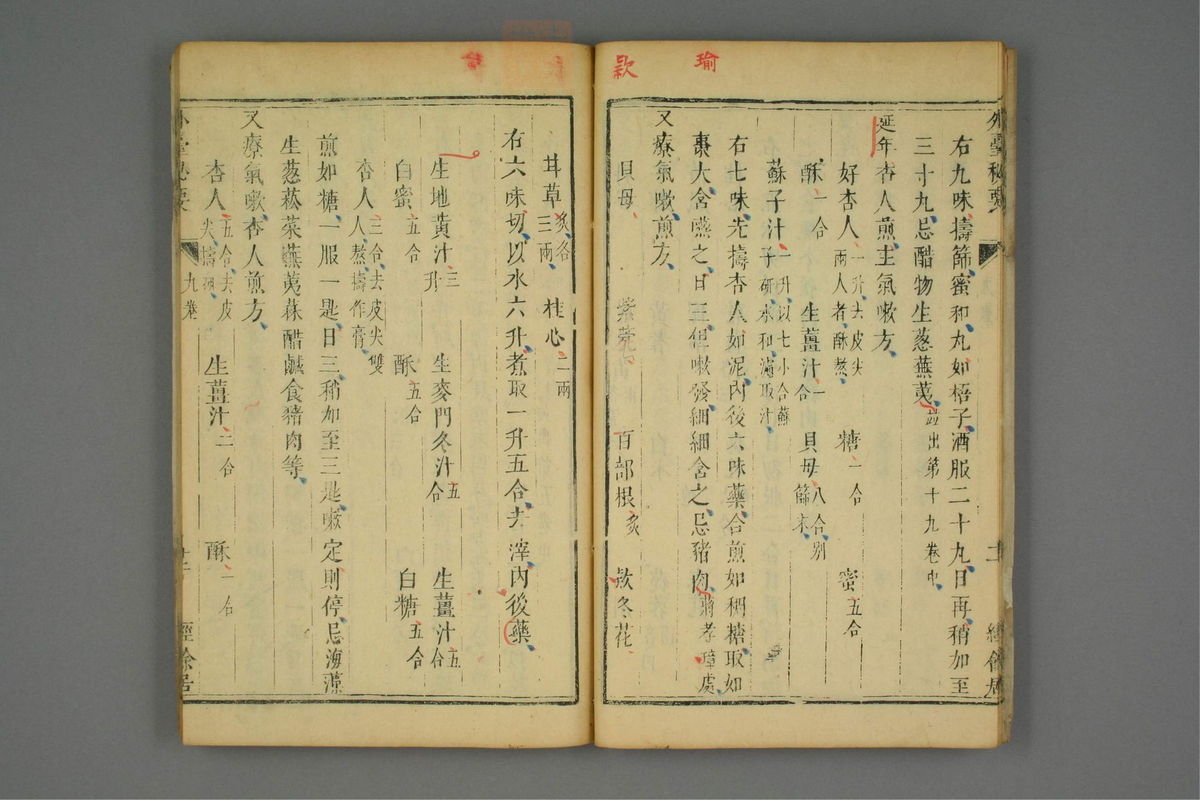 瑜
欵
外臺秘要
右九味擣篩蜜和丸如梧子酒服二十丸日再稍加至
三十丸忌醋物生葱蕪荑並出第十九卷中
延年杏人煎主氣嗽方
好杏人一升去皮尖兩人者酥熬 糖一合 蜜五合
酥一合 生薑汁一合 貝母八合別篩末
蘇子汁一升以七小合蘇子研水和濾取汁
右七味先擣杏人如泥內後六味藥合煎如稠糖取如
棗大含嚥之日三但嗽發細細含之忌豬肉蔣孝璋處
又療氣嗽煎方
貝母 紫菀 百部根炙 款冬花
甘草炙各三兩 桂心二兩
右六味切以水六升煮取一升五合去滓內後藥
生地黃汁三升 生麥門冬汁五合 生薑汁五合
白蜜五合 酥五合 白糖五合
杏人三合去皮尖雙人熬擣作膏
煎如糖一服一匙日三稍加至三匙嗽定則停忌海藻
生葱菘菜蕪荑蒜醋鹹食豬肉等
又療氣嗽杏人煎方
杏人五合去皮尖擣 生薑汁二合 酥一合
外臺秘要 九卷 十二 經餘居